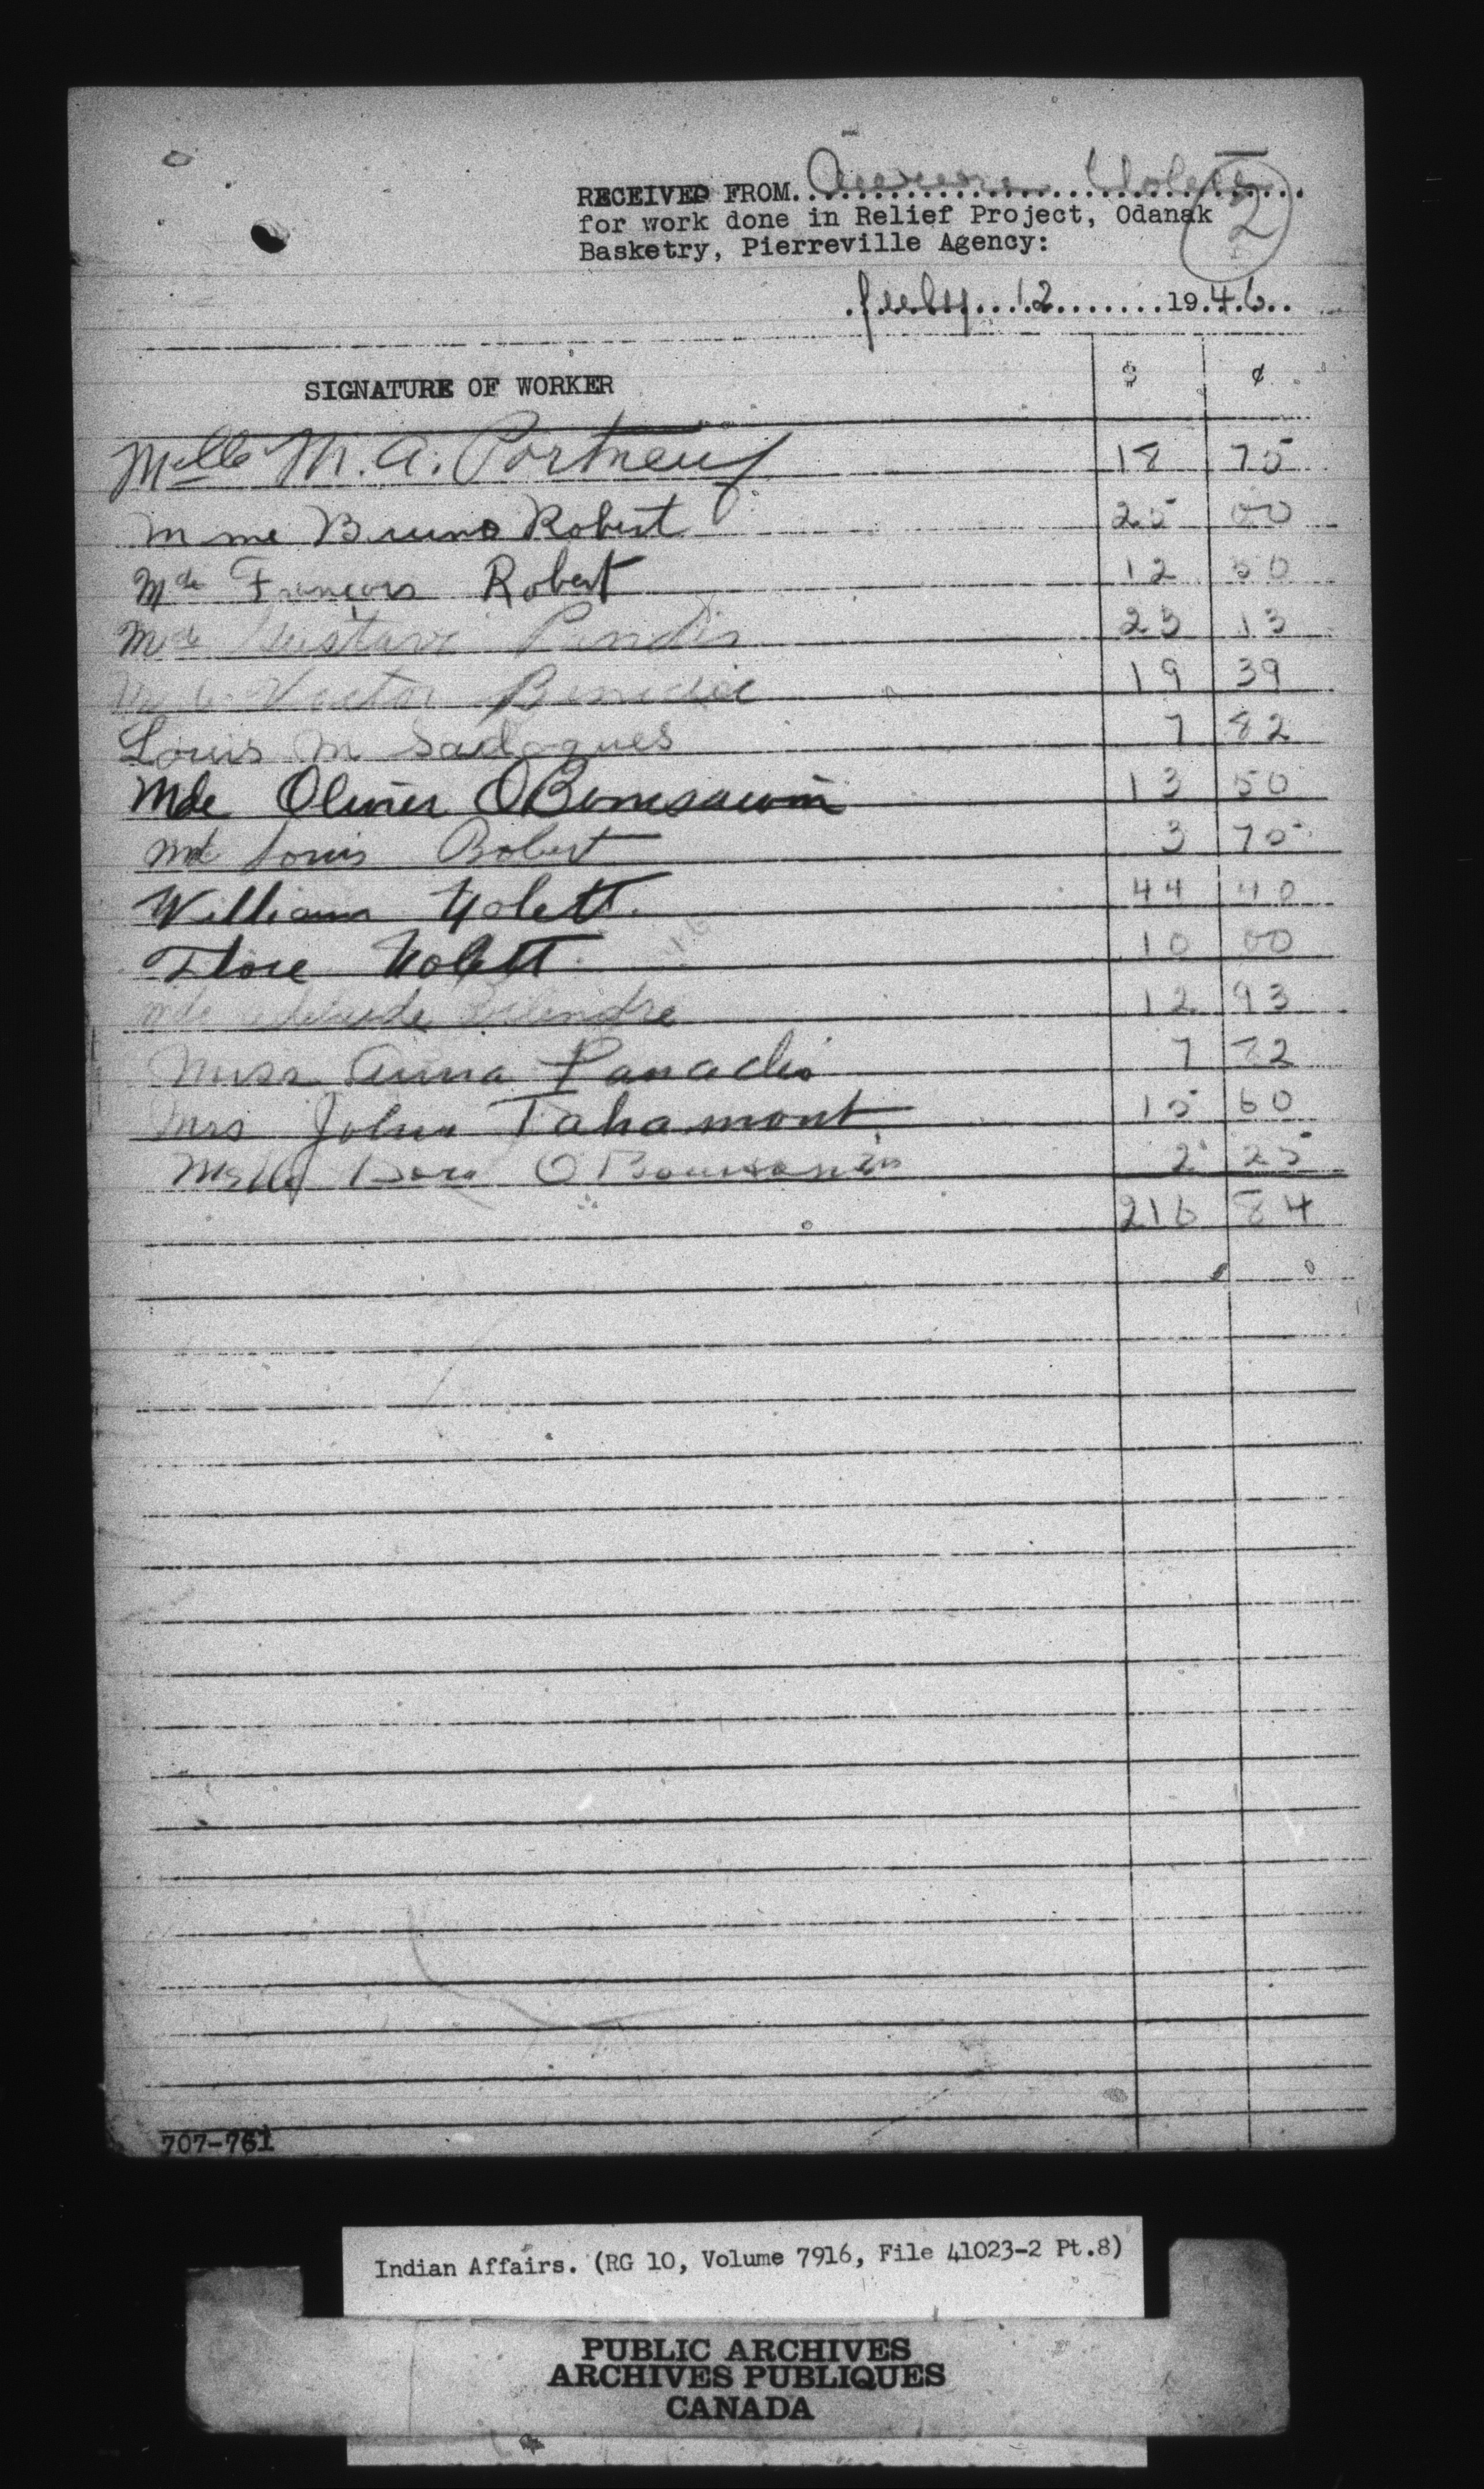 RECEIVED FROM
for work done in Relief Project, Odanak
2
Basketry, Pierreville Agency:
July 12 1946
SIGNATURE OF WORKER $ ¢
Melle M. A. Portneuf 18 75
Mme Bruno Robert 25 00
Mde François Robert 12 50
Mde Gustave 23 13
Victor 19 39
Louis M Sadoques 7 82
Mde Olivier OBomsawin 13 50
Md Louis Robert 3 75
William Nolett 44 40
Flore Nolett 10 00
Mde 12 93
Miss Anna Panadis 7 82
Mrs John Tahamont 15 60
Melle Dora OBomsawin 2 25
216 84
707-761
Indian Affairs. (RG 10, Volume 7916, File 41023-2 Pt.8)
PUBLIC ARCHIVES
ARCHIVES PUBLIQUES
CANADA